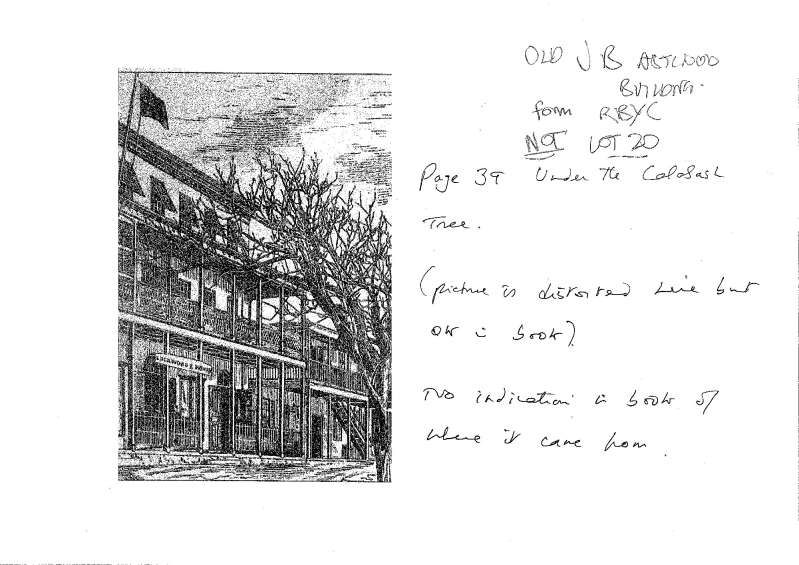 OLD J B ASTWOOD
BUILDING.
from RBYC
NOT LOT 20
Page 39 Under The Calabash
Tree.
(picture is distorted here but
OK in book)
No indication in book of
where it came from.